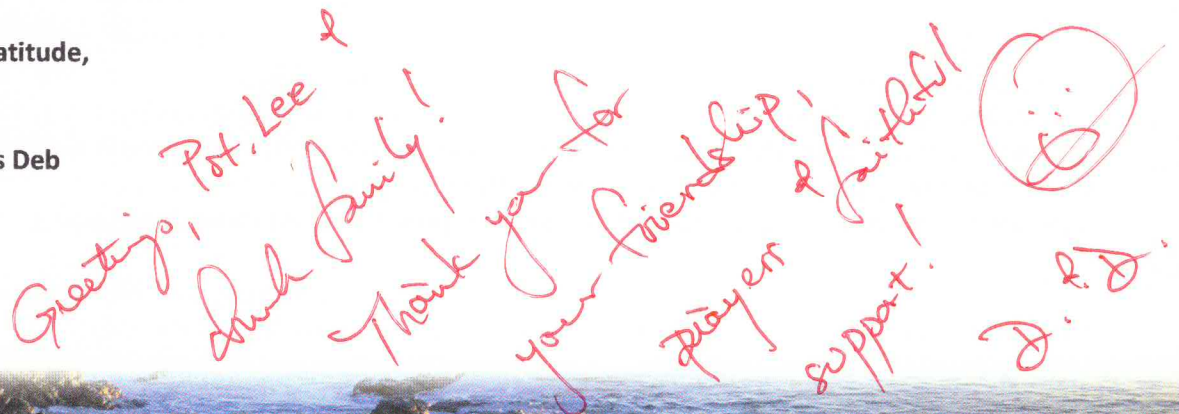 atitude,
s Deb
Greetings, Pst. Lee &
church family!
Thank you for
your friendship,
prayers & faithful
support!
D. & D.